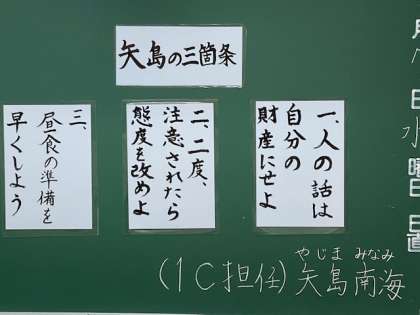 矢島の三箇条
一、人の話は
自分の
財産にせよ
二、二度、
注意されたら
態度を改めよ
三、
昼食の準備を
早くしよう
月
日
水
曜日
日直
(1C担任)矢島南海
やじま みなみ